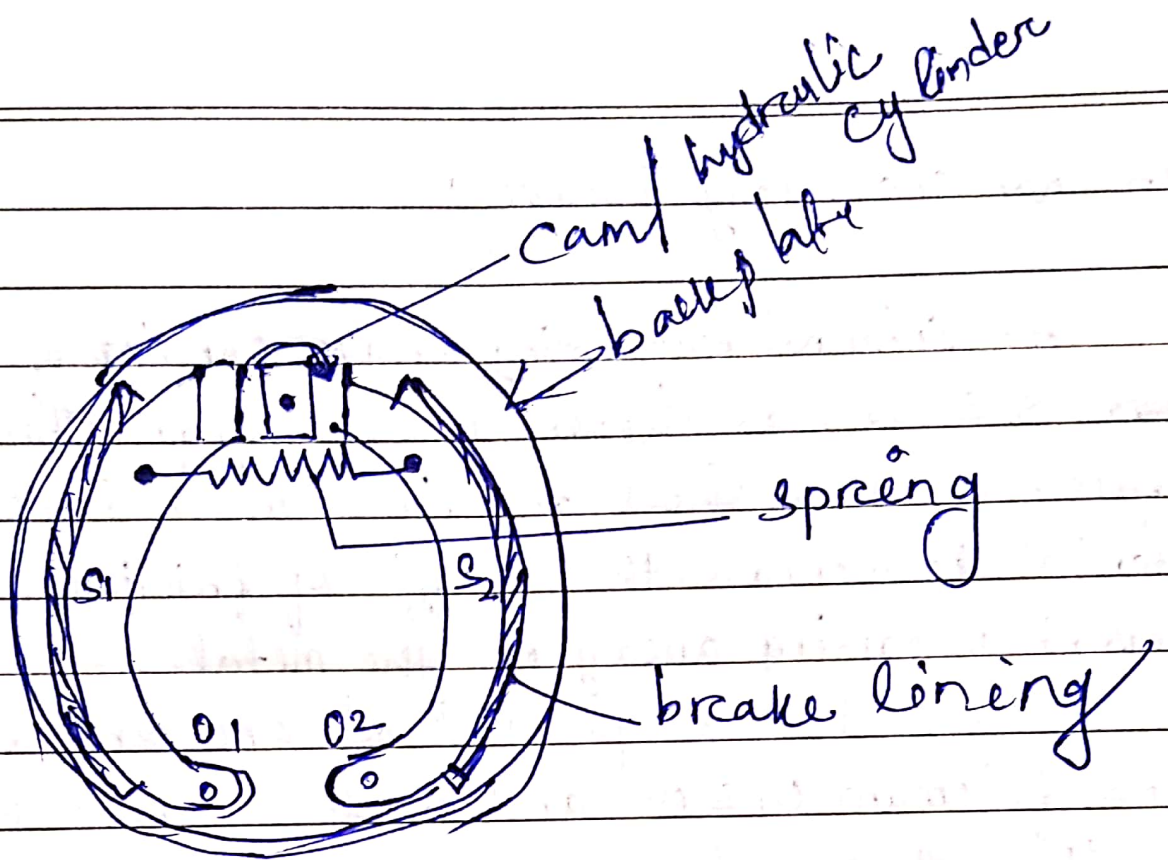 cam/ hydraulic
cylinder
backplate
spring
S1
S2
brake lining
O1
O2